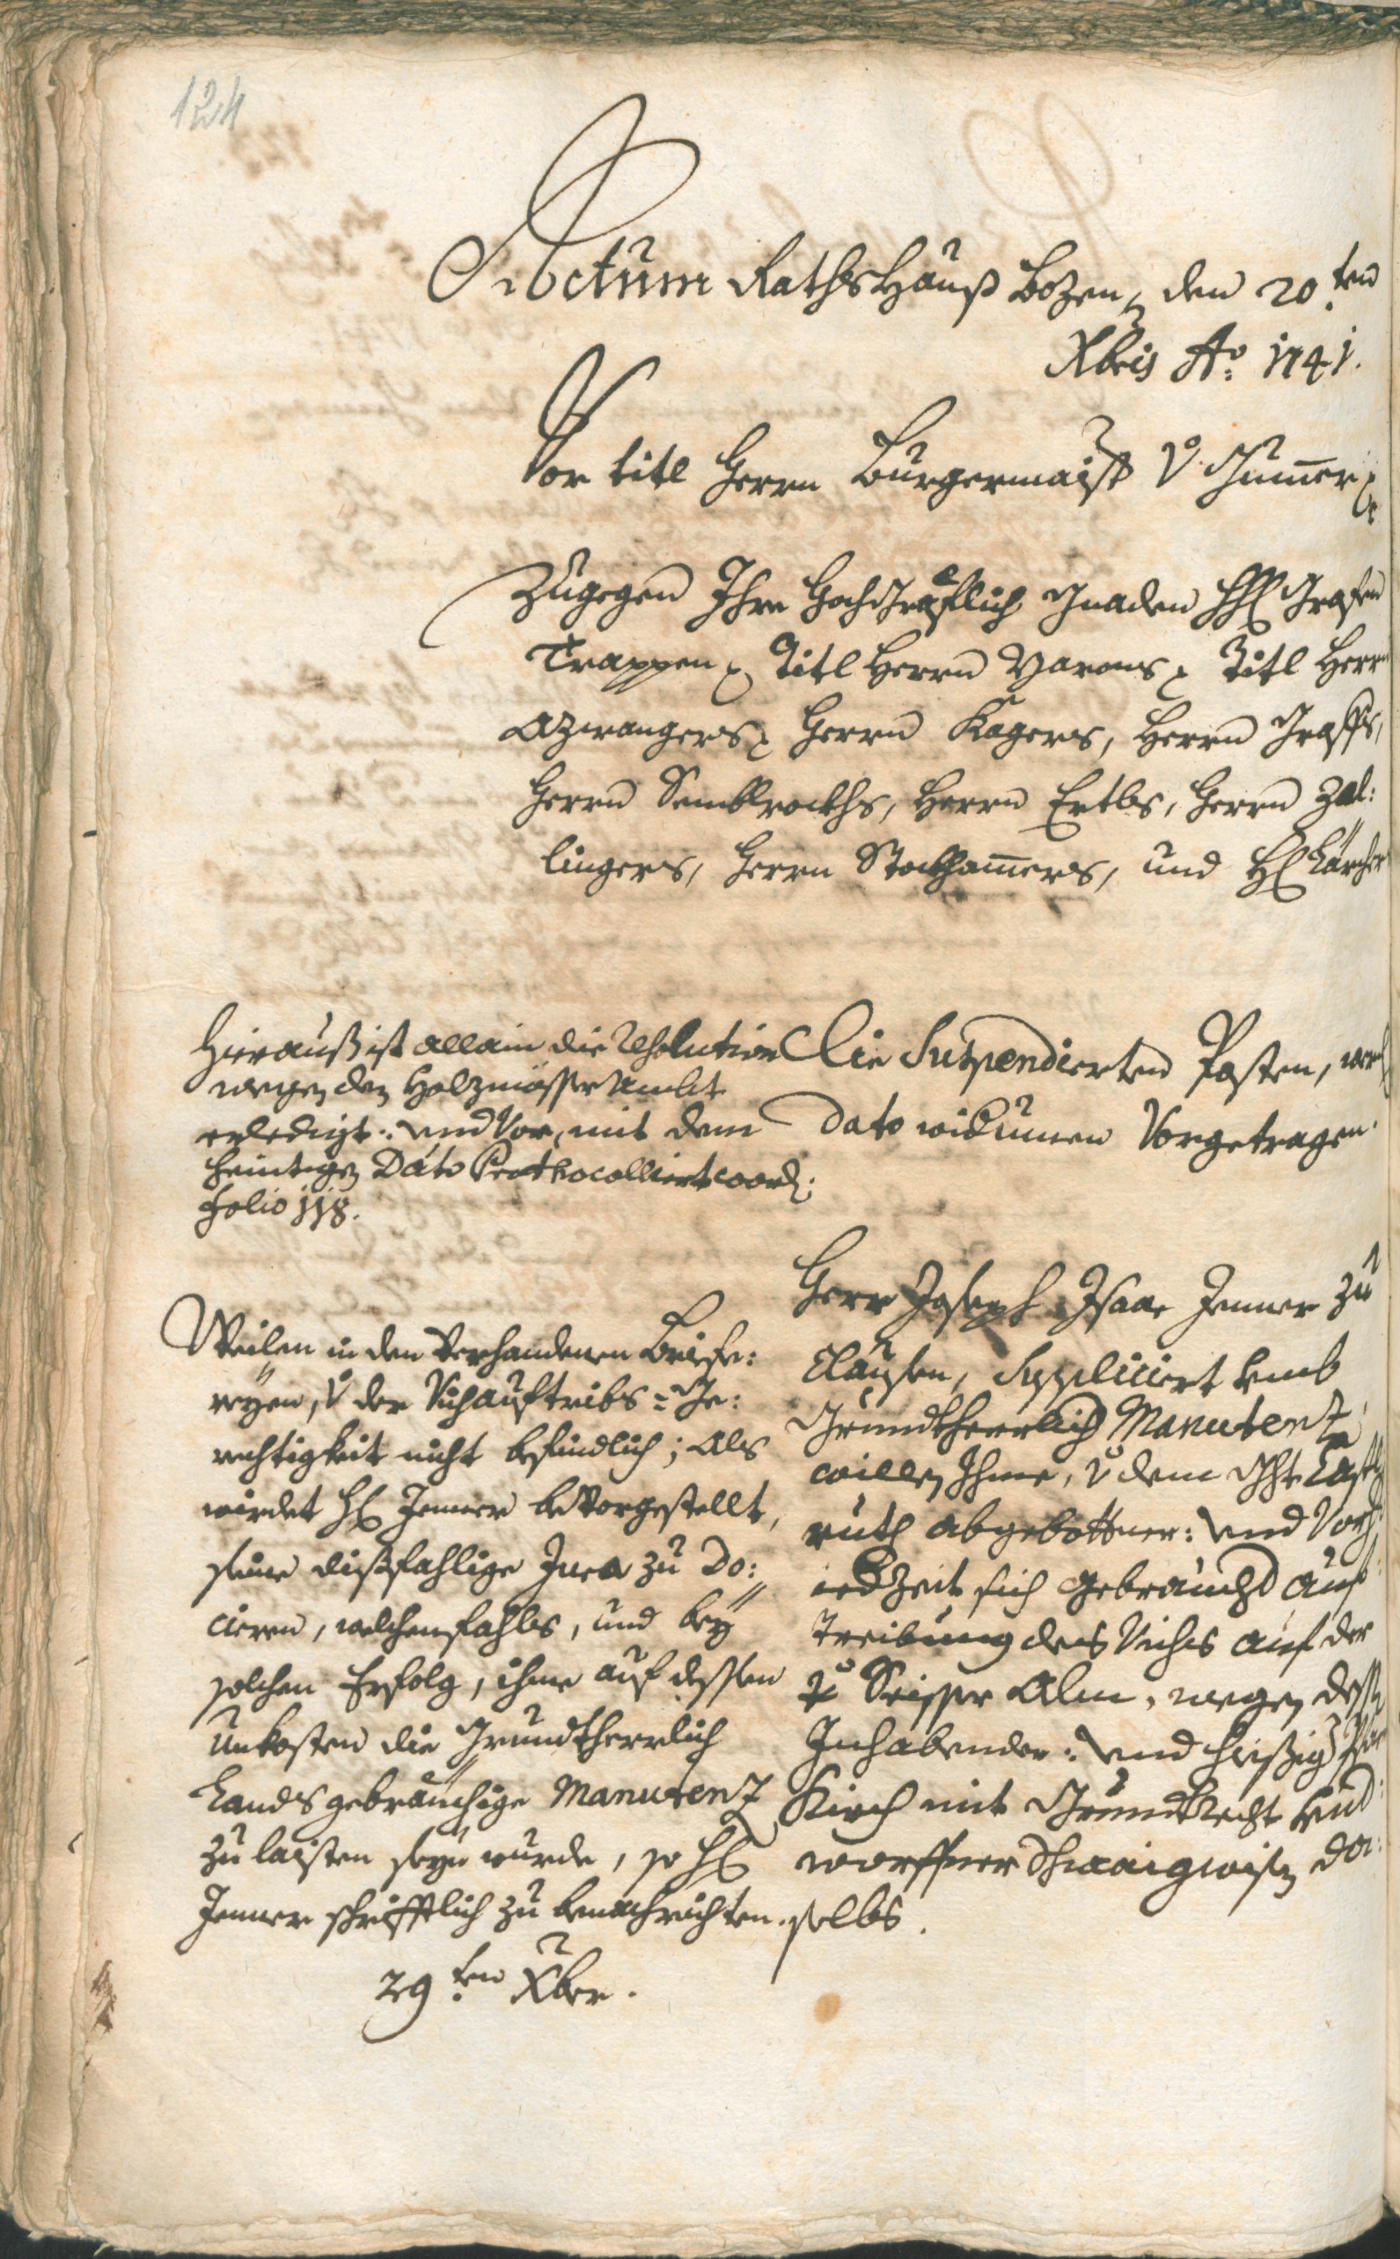 124
Actum Raths Hauß Bozen, den 20.ten
Xbris Ao: 1741.
Vor titl Herrn Burgermaistr v Gumer
Zugegen Ihre Hochgräflich Gnaden HH Grafen
Trappen, Titl Herrn Marons, Titl Herrn
Azwangers, Herrn Kagers, Herrn Graffs,
Herrn Semblrockhs, Herrn Ertls, Herrn Zal:
lingers, Herrn Stockhamers, und H Larcher
Hieraus ist allain die Resolution
wegen des Holzmösser Ambt
erledigt: und vor, mit dem
heintigen Dato Prothocolliert word:
folio 118.
Die Suspendierten Posten, werd
dato widumen Vorgetragen.
Weilen in den Verhandenen Briefe:
reyen, v der Vichauftribs=Ge:
rechtigkeit nicht befindlich; Als
wirdet H Jenner bevorgestellt,
seine disfahlige Jura zu Do:
cieren, welchenfahls, und bey
solchen Erfolg, ihme auf dessen
Unkosten die Grundtherrlich
Landsgebräuchige Manutenz
zu laisten seyn wurde, so H
Jenner schrifftlich zu benachrichten.
29.ten Xber.
Herr Joseph Isaac Jenner zu
Clausen, Suppliciert umb
Grundtherrlich Manutenz,
willen Ihme, v dem Ght Castl
ruth abgebottner: und Vorh:
iedZeit sich gebrauchd auf
treibung des Vichs auf der
Seisser Alm, wegen dessen
Inhabender: und hießig Pfar
Kirch mit Grundtrecht Und:
worffner Schwaigwisen da:
selbs.